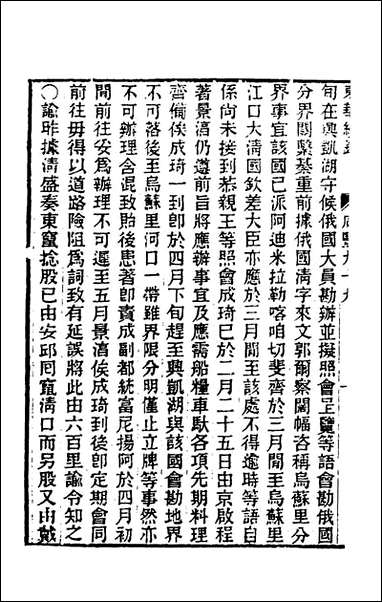 東華續錄　咸豐九十九
旬在興凱湖守候俄國大員勘辦並擬照會呈覽等語會勘俄國
分界關繫綦重前據俄國清字來文郭爾察闊幅咨稱烏蘇里分
界事宜該國已派阿迪米拉勒喀咱切斐齊於三月間至烏蘇里
江口大清國欽差大臣亦應於三月間至該處不得逾時等語自
係尚未接到恭親王等照會成琦已於二月二十五日由京啟程
著景淳仍遵前旨將應辦事宜及應需船糧車馱各項先期料理
齊備俟成琦一到即於四月下旬趕至興凱湖與該國會勘地界
不可落後至烏蘇里河口一帶雖界限分明僅止立牌等事然亦
不可辦理含混致貽後患著即責成副都統富尼揚阿於四月初
間前往安為辦理不可遲至五月景淳俟成琦到後即定期會同
前往毋得以道路險阻為詞致有延誤將此由六百里諭令知之
〇諭昨據清盛奏東竄捻股已由安邱回竄清口而另股又由戴